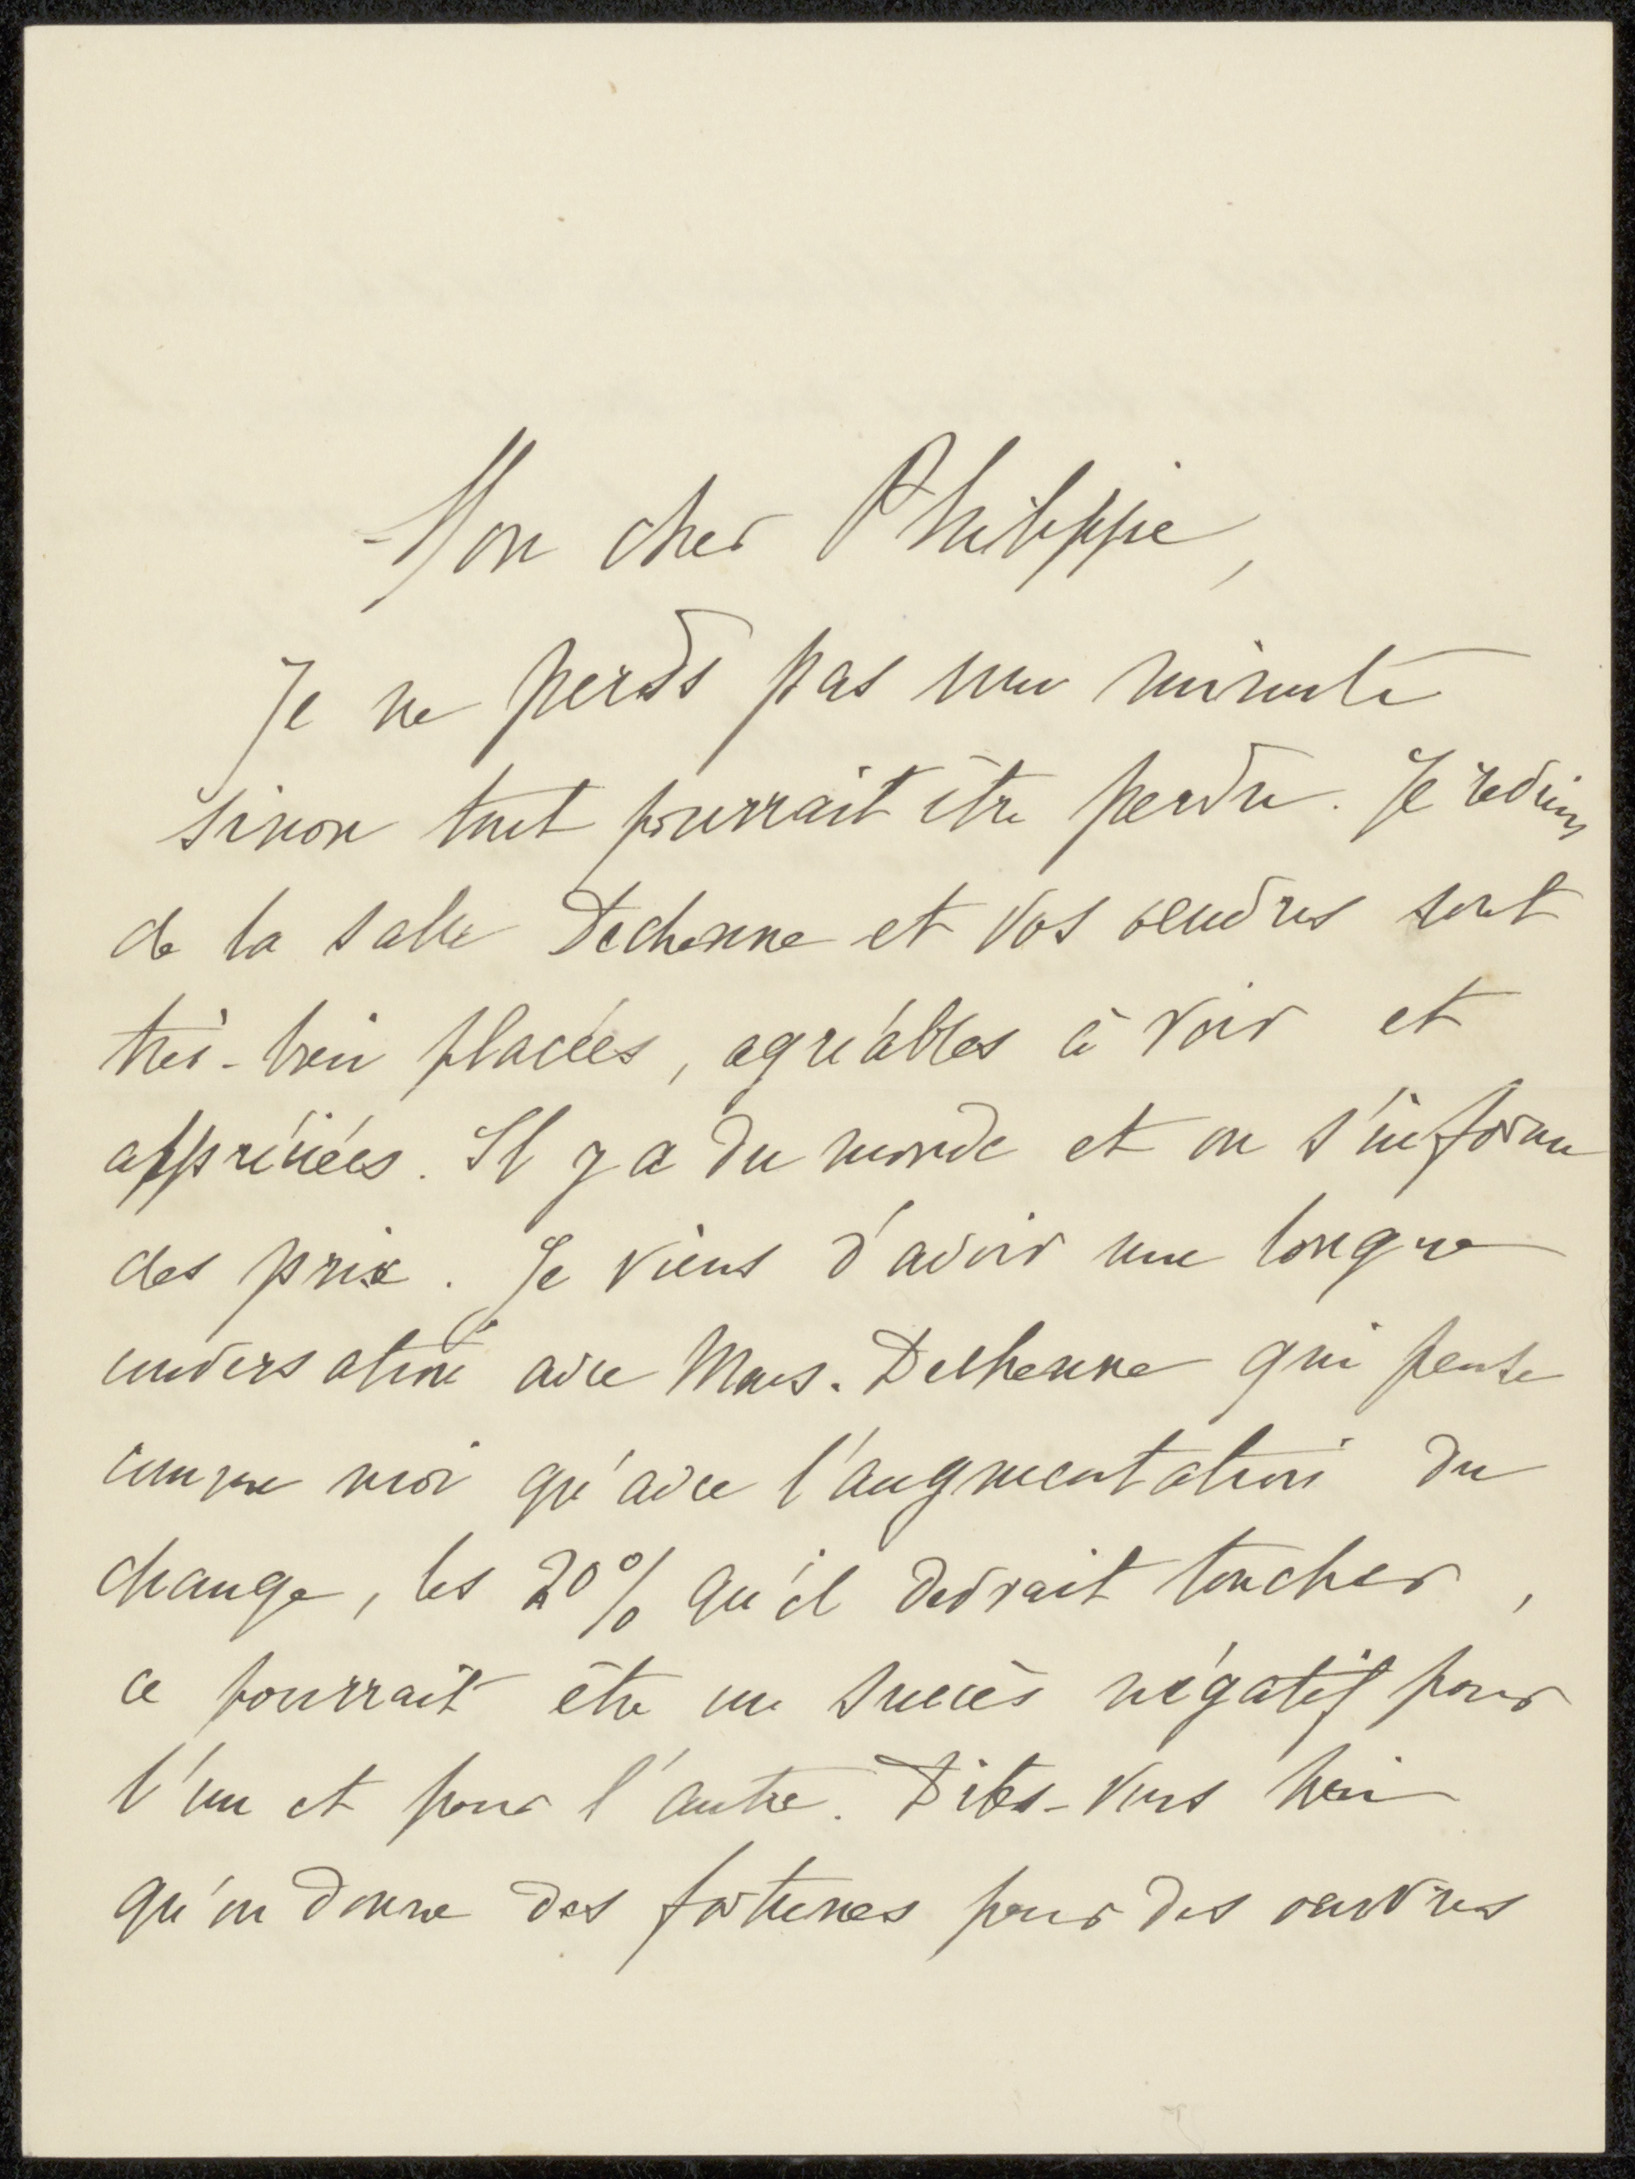 Mon cher Philippe,
Je ne perds pas une minute
sinon tout pourrait être perdu. Je reviens
de la salle Dechenne et vos oeuvres sont
très-bien placées, agréables à voir et
appréciées. Il y a du monde et on s'informe
des prix. Je viens d'avoir une longue
conversation avec Mons. Dechenne qui pense
comme moi qu'avec l'augmentation du
change, les 20% qu'il devrait toucher,
ce pourrait être un succès négatif pour
l'un et pour l'autre. Dites-vous bien
qu'on donne des fortunes pour des oeuvres